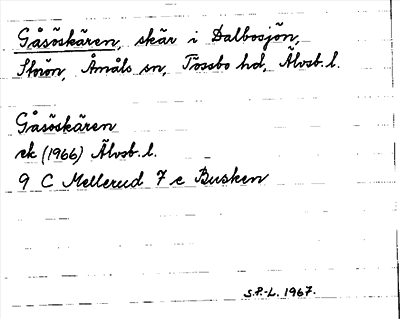 Gåsöskären, skär i Dalbosjön,
Storön, Åmåls sn, Tössbo hd, Älvsb. l.
Gåsöskären
ek (1966) Älvsb. l.
9 C Mellerud 7 e Busken
S.P.-L. 1967.